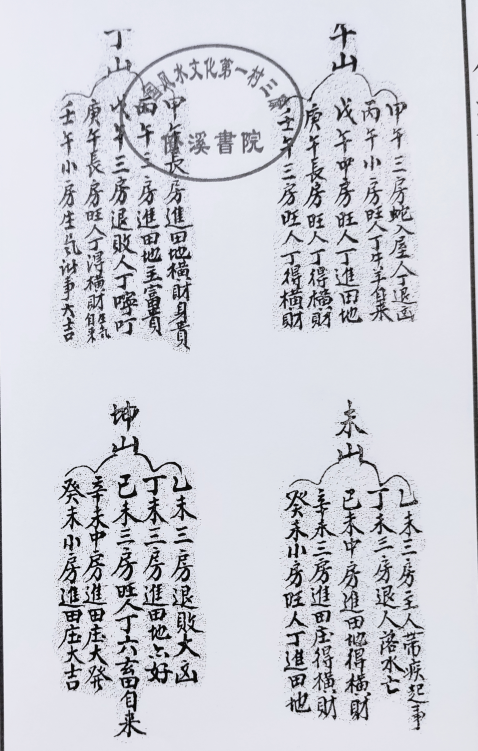 午山
甲午三房蛇入屋人丁退凶
丙午小房旺人丁牛羊自来
戊午中房旺人丁進田地
庚午長房旺人丁得横財
壬午三房旺人丁得横財
丁山
甲午長房進田地横財身貴
丙午三房進田地主富貴
戊午三房退敗人丁嚀叮
庚午長房旺人丁得横財自来
壬午小房生气事大吉
风水文化第一村三
溪書院
未山
乙未三房主人带疾起事
丁未三房退人落水亡
己未中房進田地得横財
辛未三房進田庄得横財
癸未小房旺人丁進田地
坤山
乙未三房退敗大凶
丁未三房進田地六好
己未三房旺人丁六畜田自来
辛未中房進田庄大發
癸未小房進田庄大吉